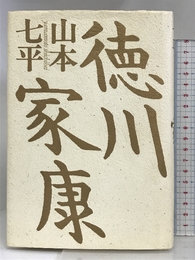 徳川
家康
山本
七平